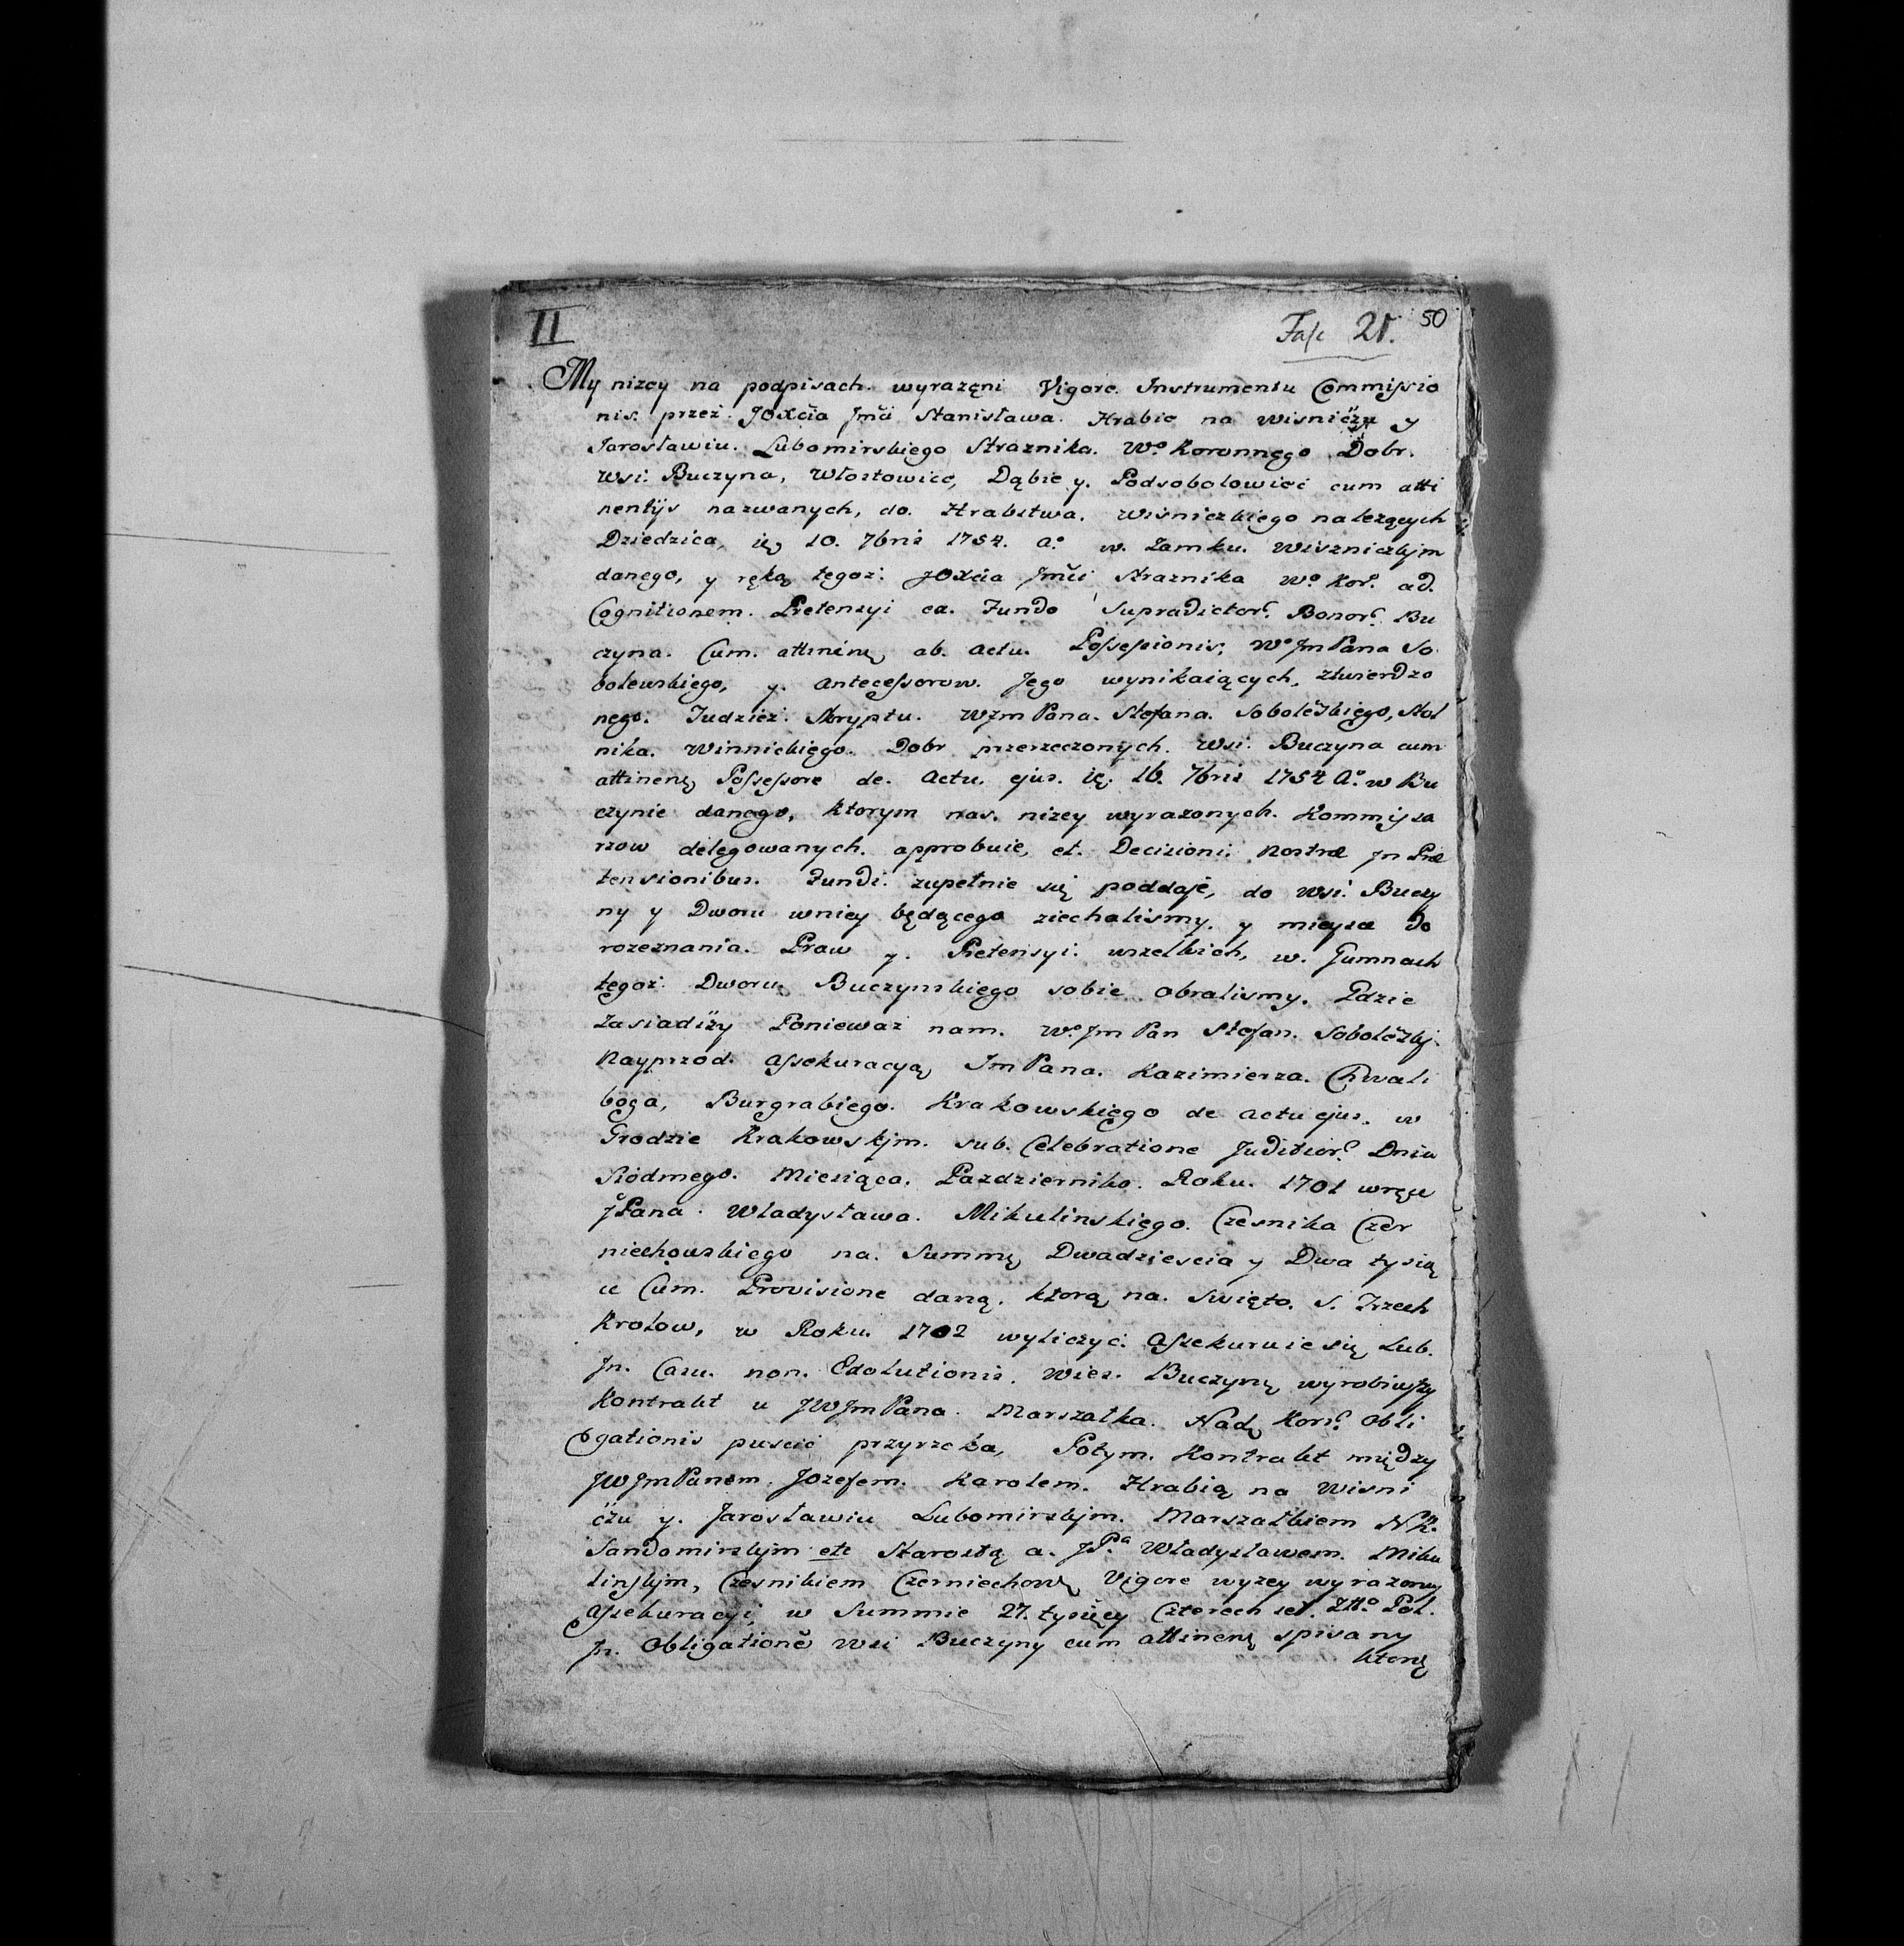 II
Fasc 21. 50
My nizey na podpisach. wyrazęni Vigore. Instrumentu Commissio
nis. przez. JOXcia Jmći Stanisława. Hrabie na Wisniczu y
Jarosławiu. Lubomirskiego Straznika. Wo Koronnęgo Dobr.
Wsi. Buczyna, Włostowice, Dąbie y. Podsobolowice cum atti
nentijs nazwanych, do. Hrabstwa. Wisnickiego nalezących
Dziedzica, die 10. 7bris 1754. Ao w. Zamku. Wisznickjm
danego, y ręką tęgoz. JOXcia Jmći Straznika Wo Kor. ad.
Cognitionem. Pretensyi ea. Fundo Supradictor. Bonor. Bu
czyna. Cum. attinen. ab. actu. Possessionis, Wo Jm Pana So
bolewskięgo, y. antecessorow. Jęgo wynikaiących, ztwierdzo
nego. Tudziez. Skryptu. WJm Pana. Stefana. Sobolewskięgo, Stol
nika. Winnickięgo. Dobr przerzeczonych. Wsi. Buczyna cum
attinen. Possessore de. Actu. ejus. die. 16. 7bris 1754 Ao w Bu
czynie danego, ktorym nas. nizey wyrazonych. Kommissa
rzow delęgowanych. approbuie, et. Decisioni. Nostræ Jn Præ
tensionibus. Fundi. zupełnie się poddaje, do wsi. Buczy
ny y Dworu wniey będącego ziechalismy. y mieysce do
rozeznania. Praw y. Pretensyi. wszelkich, w. Gumnach
tęgoz. Dworu. Buczynskiego sobie obralismy. Gdzie
Zasiadszy Poniewaz nam. Wo Jm Pan Stefan. Sobolewskj.
Nayprzod. assekuracyą Jm Pana. Kazimierza. Chwali
boga, Burgrabięgo. Krakowskięgo de actu ejus. w
Grodzie Krakowskjm. sub. Celebratione Judicior. Dnia
Siodmego. Miesiąca. Pazdziernika. Roku. 1701 wręce
JPana. Władysława. Mikulinskięgo. Czesnika Czer
niechowskiego na. Summę Dwadziescia y Dwa tysią
ce Cum. Provisione daną. ktorą na. Swięto. S. Trzech
Krolow, w Roku. 1702 wyliczyc. assekuruie się Lub.
Jn. Casu. non. Exolutionis. Wies. Buczynę wyrobiwszy
Kontrakt u JWJm Pana. Marszałka. Nad. Kor. obli
gationis puscic przyrzeka, Potym. Kontrakt między
JWJm Panem. Jozefem. Karolem. Hrabią na Wisni
czu y. Jarosławiu Lubomirskjm. Marszałkiem NK.
Sandomirskjm etc Starostą a. JP.a Władysławem. Miku
linskjm, Czesnikiem Czerniechow. Vigore wyzey wyrazoney
assekuracyi w Summie 27. tysięcy Czterech set. Złło Pol.
Jn. Obligationē Wsi Buczyny cum attinen. spisany
ktory